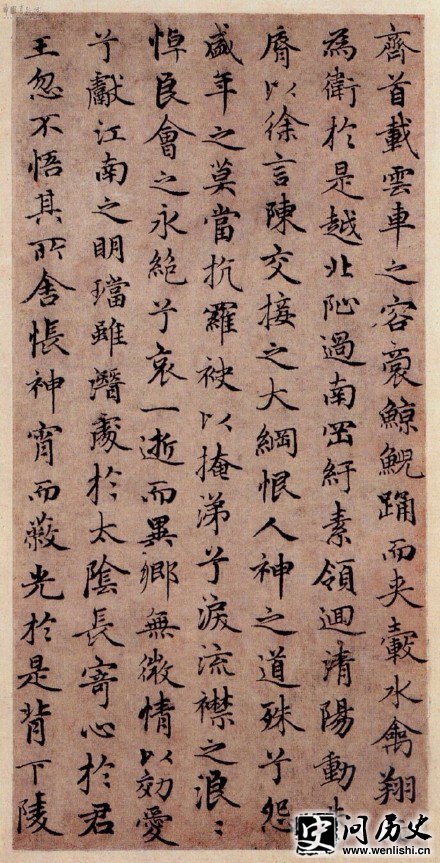 齊首載雲車之容裔鯨鯢踊而夾轂水禽翔
為衛於是越北沚過南罡紆素領迴清陽動朱
脣以徐言陳交接之大綱恨人神之道殊兮怨
盛年之莫當抗羅袂以掩涕兮淚流襟之浪〻
悼良會之永絕兮哀一逝而異鄉無微情以効愛
兮獻江南之明璫雖潛處於太陰長寄心於君
王忽不悟其所舍悵神宵而蔽光於是背下陵
问历史
www.wenlishi.cn